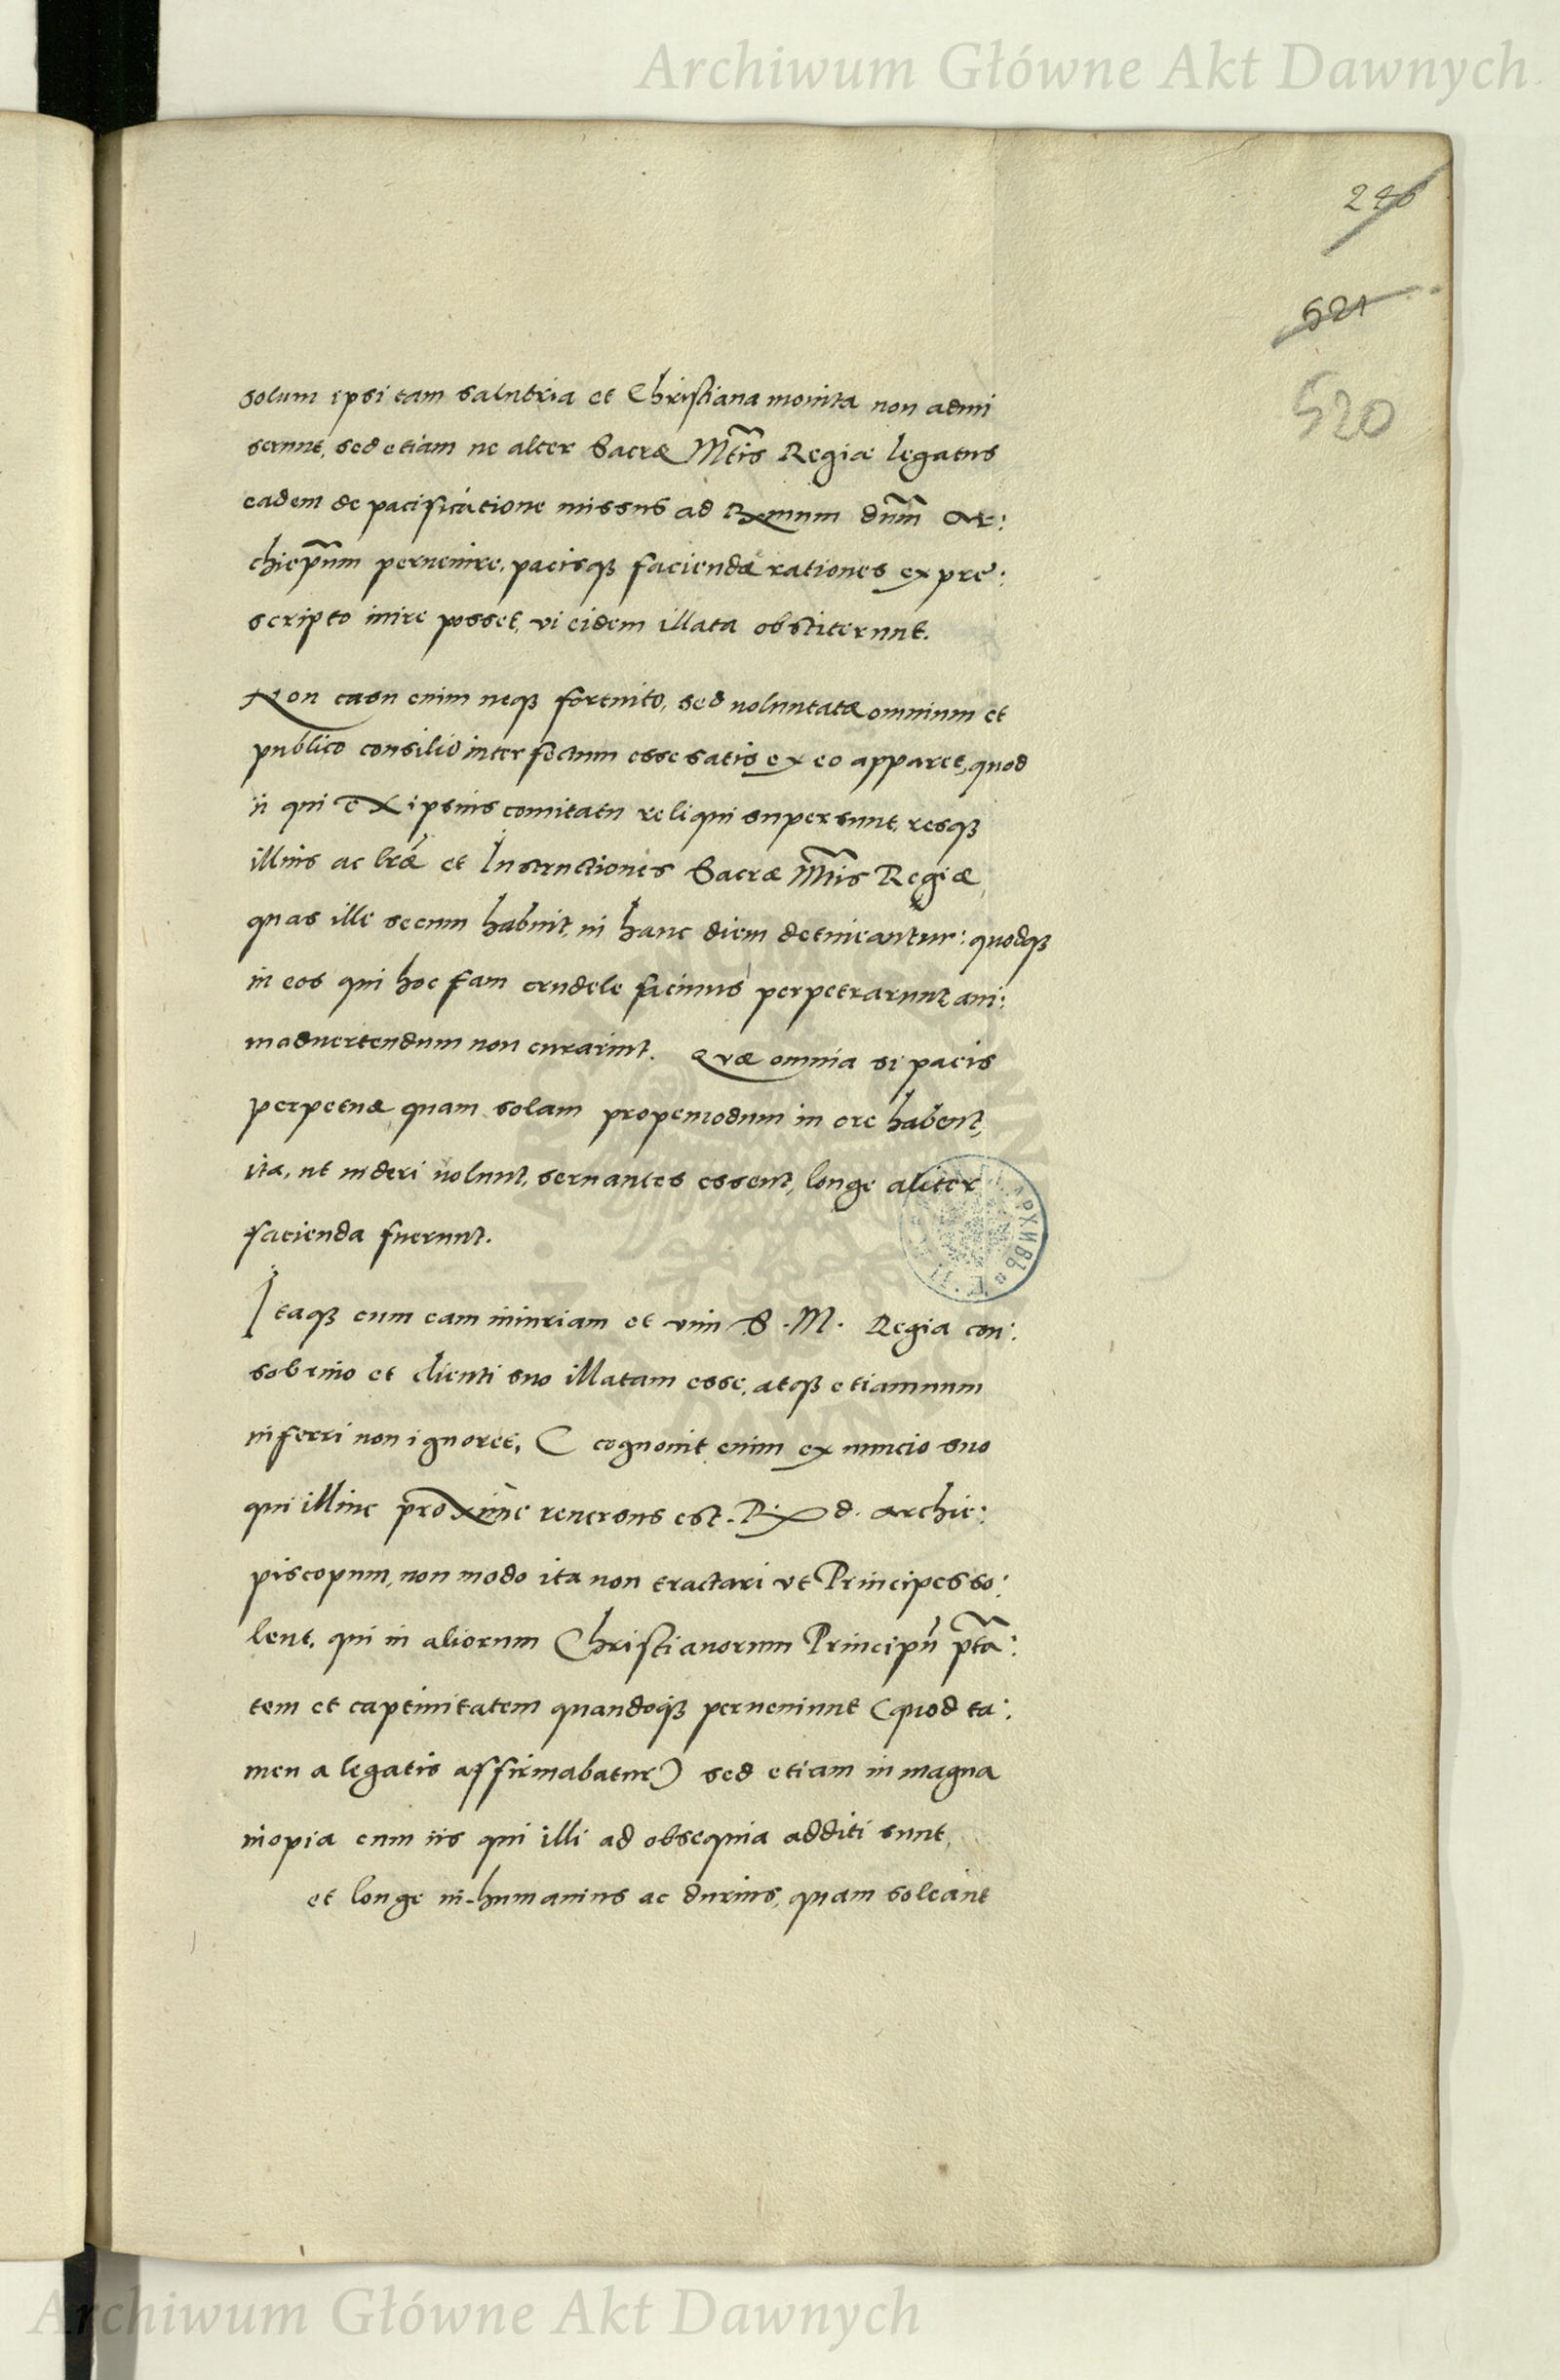 Archiwum Główne Akt Dawnych
246
521
520
solum ipsi tam salutria et Christiana monita non admi
serunt, sed etiam ne alter Sacræ Mtis Regiæ legatus
eadem de pacificatione missus ad Rmum dnm Ar:
chiepum peruenire, pacisq faciendæ rationes ex pre:
scripto inire posset, vi eidem illata obstiterunt.
Non casu enim neq fortuito, sed uoluntate omnium et
publico consilio interfectum esse satis ex eo apparet, quod
ii qui ex ipsius comitatu reliqui supersunt, resq
illius ac lræ et Instructiones Sacræ Mtis Regiæ
quas ille secum habuit, in hanc diem detineantur: quodq
in eos qui hoc tam crudele facinus perpetrarunt ani:
maduertendum non curarint. Quæ omnia si pacis
perpetuæ quam solam propemodum in ore habent,
ita, ut uideri uolunt, seruantes essent, longe aliter
facienda fuerunt.
Itaq cum eam iniuriam et vim S. M. Regia con:
sobrino et clienti suo illatam esse, atq etiamnum
inferri non ignoret, ( cognouit enim ex nuncio suo
qui illinc proxime reuersus est. R. d. Archie:
piscopum, non modo ita non tractari vt Principes so:
lent, qui in aliorum Christianorum Principu ptã:
tem et captiuitatem quandoq perueniunt (quod ta:
men a legatis affirmabatur) sed etiam in magna
inopia cum iis qui illi ad obsequia additi sunt,
et longe in-humanius ac durius, quam soleant
АРХИВЪ
Archiwum Główne Akt Dawnych